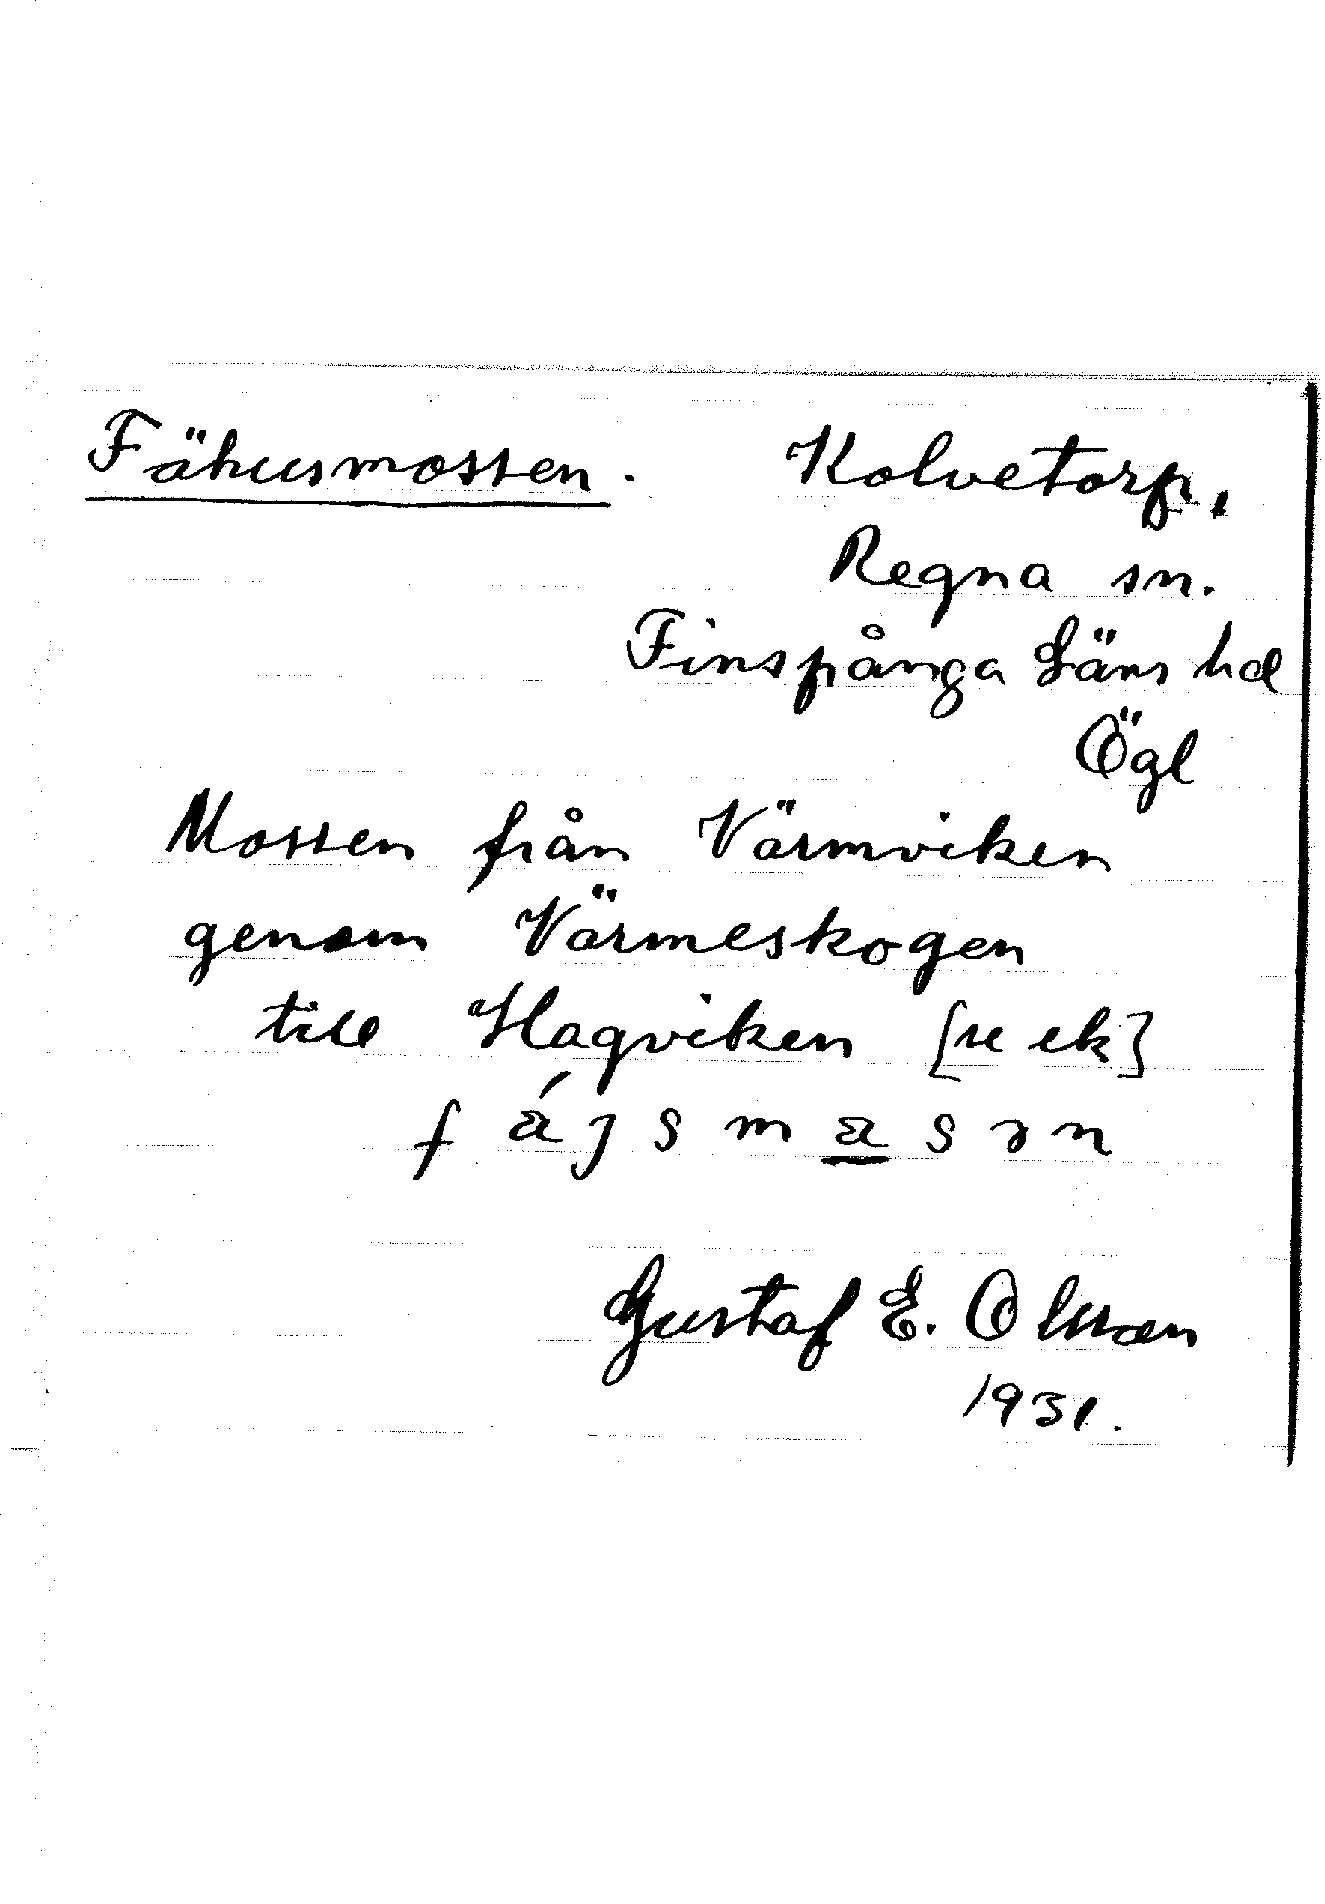 Fähusmossen. Kolvetorp,
Regna sn.
Finspånga Läns hd
Ögl
Mossen från Värmviken
genom Värmeskogen
till Hagviken [se ek]
Gustaf E. Olsson
1931.